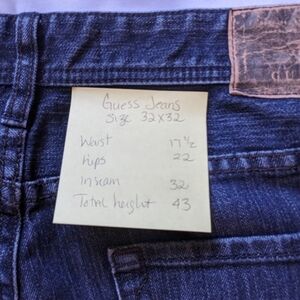 Guess Jeans
Size 32x32
Waist 17 1/2
hips 22
inseam 32
Total height 43